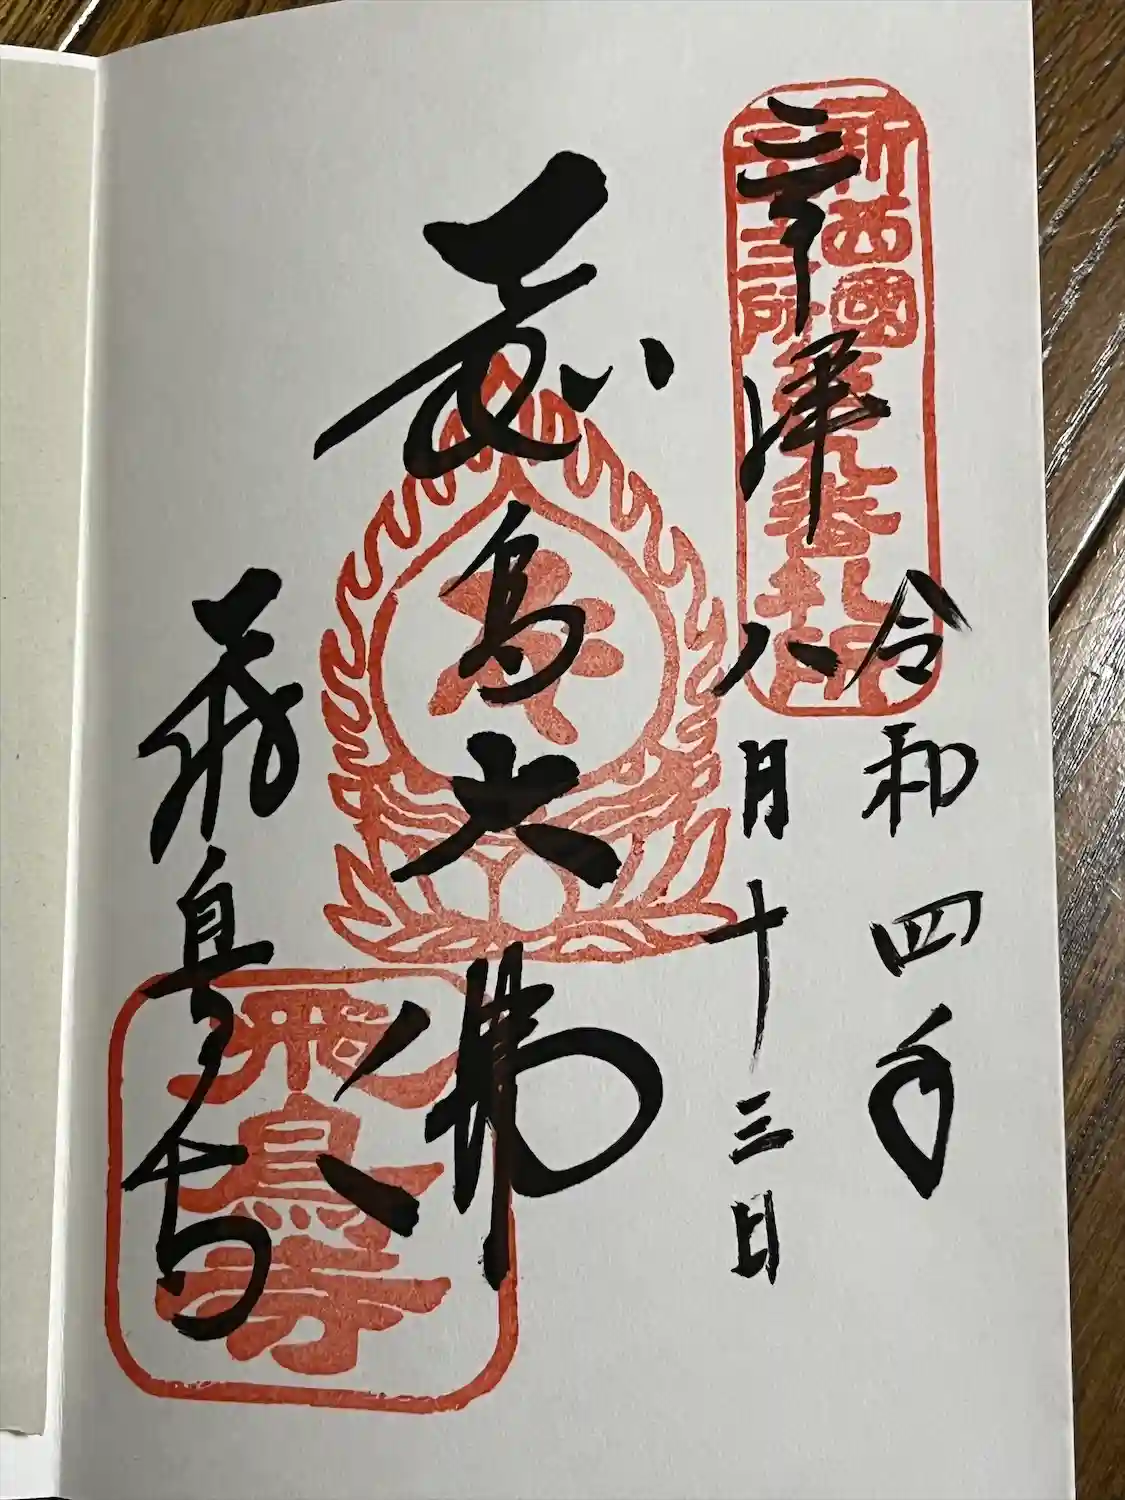 奉拝
令和四年
八月十三日
飛鳥大佛
飛鳥寺
新西國
三十三所
第九番札所
飛鳥寺